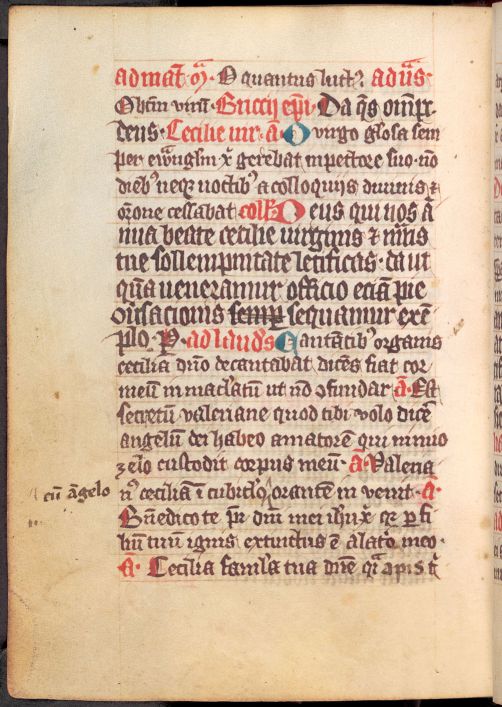 ad mat̄ a͞. O quantus luct9. ad vās.
Ob̄tin vīm. Briccij ep̄i. Da q̄s om̄ip̄.
deus. Cecilie vir. ā. O virgo gl̄osa sem
per ewāgliū x̄ gerebat in pectore suo. nō
dieb9 neq; noctib9 a colloquijs diuinis ⁊
orōne cessabat coll̄a Deus qui nos ā
nua beate cecilie uirginis ⁊ mr̄is
tue sollempnitate letificas. da ut
quā ueneramur officio eciā pie
ōūsacionis semp̄ sequamur exē
plo. P̄. ad laudes Cantātib9 organis
cecilia dn̄o decantabat dicēs fiat cor
meū inmac̄latū ut nō ꝯfundar ā. Est
secretū valeriane quod tibi volo dicē
angelū dei habeo amatorē qui nimio
zelo custodit corpus meū. ā. Valeria
n9 ceciliā ī cubicl̄o orantem in venit. ā.
cū āngelo
Bn̄edico te pr̄ dn̄i mei ihū x̄ q; ꝑ fi
liū tuū ignis extinctus ē a lat̄e meo.
ā. Cecilia faml̄a tua dn̄e q̄i apis t̄